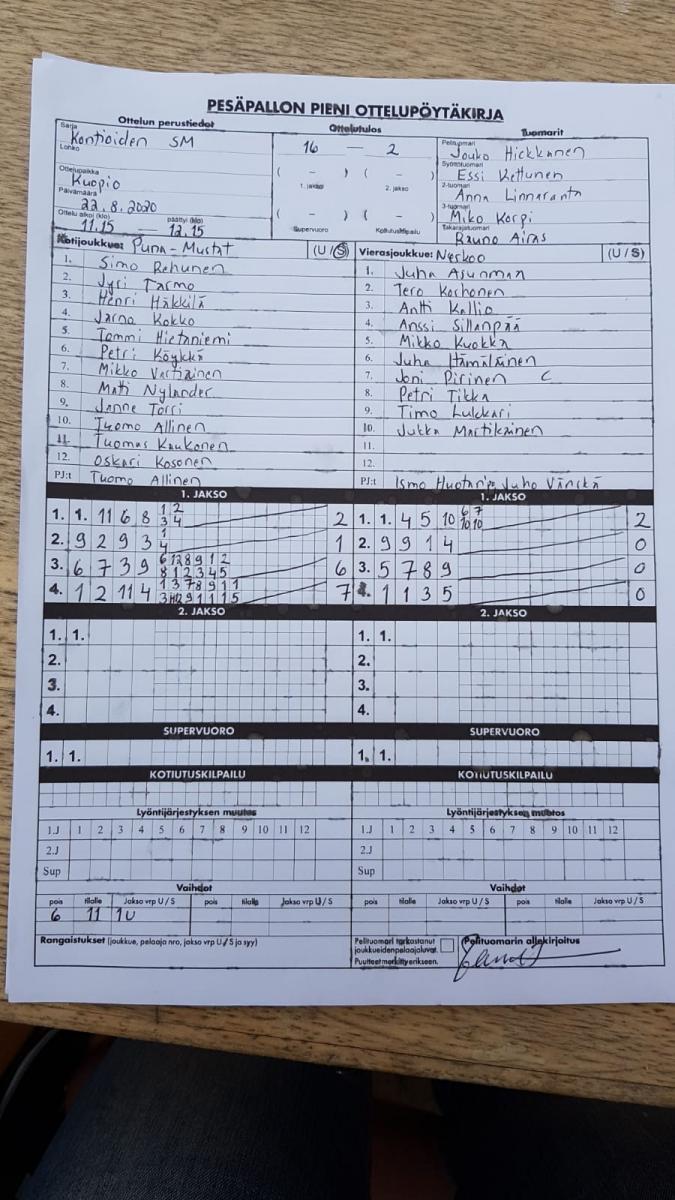 PESÄPALLON PIENI OTTELUPÖYTÄKIRJA
Ottelun perustiedot Ottelutulos Tuomarit
Sarja Kontioiden SM
Lohko
Ottelupaikka Kuopio
Päivämäärä 22.8.2020
Ottelu alkoi (klo) 11.15 päättyi (klo) 12.15
16 — 2
( – ) ( – )
1. jakso 2. jakso
( – ) ( – )
Supervuoro Kotiutuskilpailu
Pelituomari Jouko Hickkanen
Syöttötuomari Essi Kettunen
2-tuomari Anna Linnaranta
3-tuomari Miko Korpi
Takarajatuomari Rauno Airas
Kotijoukkue: Puna-Mustat (U/S)
1. Simo Rehunen
2. Jyri Tarmo
3. Henri Häkkilä
4. Jarno Kokko
5. Tommi Hietaniemi
6. Petri Köykkä
7. Mikko Vartiainen
8. Matti Nylander
9. Janne Torri
10. Tuomo Allinen
11. Tuomas Kaukonen
12. Oskari Kosonen
PJ:t Tuomo Allinen
Vierasjoukkue: Neskoo (U/S)
1. Juha Asunmaa
2. Tero Korhonen
3. Antti Kallio
4. Anssi Sillanpää
5. Mikko Kuokka
6. Juha Hämäläinen
7. Joni Pirinen C
8. Petri Tikka
9. Timo Lukkari
10. Jukka Martikainen
11.
12.
PJ:t Ismo Huotari, Juho Vänskä
1. JAKSO 1. JAKSO
1. 1. 11 6 8 1 2 3 4 2
2. 9 2 9 3 1 4 1
3. 6 7 3 9 6 12 8 9 1 2 8 1 2 3 4 5 6
4. 1 2 11 4 1 3 7 8 9 11 7
1. 1. 4 5 10 6 7 10 10 2
2. 9 9 1 4 0
3. 5 7 8 9 0
4. 1 1 3 5 0
2. JAKSO 2. JAKSO
1. 1. 1. 1.
2. 2.
3. 3.
4. 4.
SUPERVUORO SUPERVUORO
1. 1. 1. 1.
KOTIUTUSKILPAILU KOTIUTUSKILPAILU
Lyöntijärjestyksen muutos Lyöntijärjestyksen muutos
1.J 1 2 3 4 5 6 7 8 9 10 11 12 1.J 1 2 3 4 5 6 7 8 9 10 11 12
2.J 2.J
Sup Sup
Vaihdot Vaihdot
pois tilalle Jakso vrp U/S pois tilalla Jakso vrp U/S pois tilalle Jakso vrp U/S pois tilalle Jakso vrp U/S
6 11 1U
Rangaistukset (joukkue, pelaaja nro, jakso vrp U/S ja syy)
Pelituomari tarkastanut joukkueidenpelaajaluvat. Puutteet merkitty erikseen.
Pelituomarin allekirjoitus